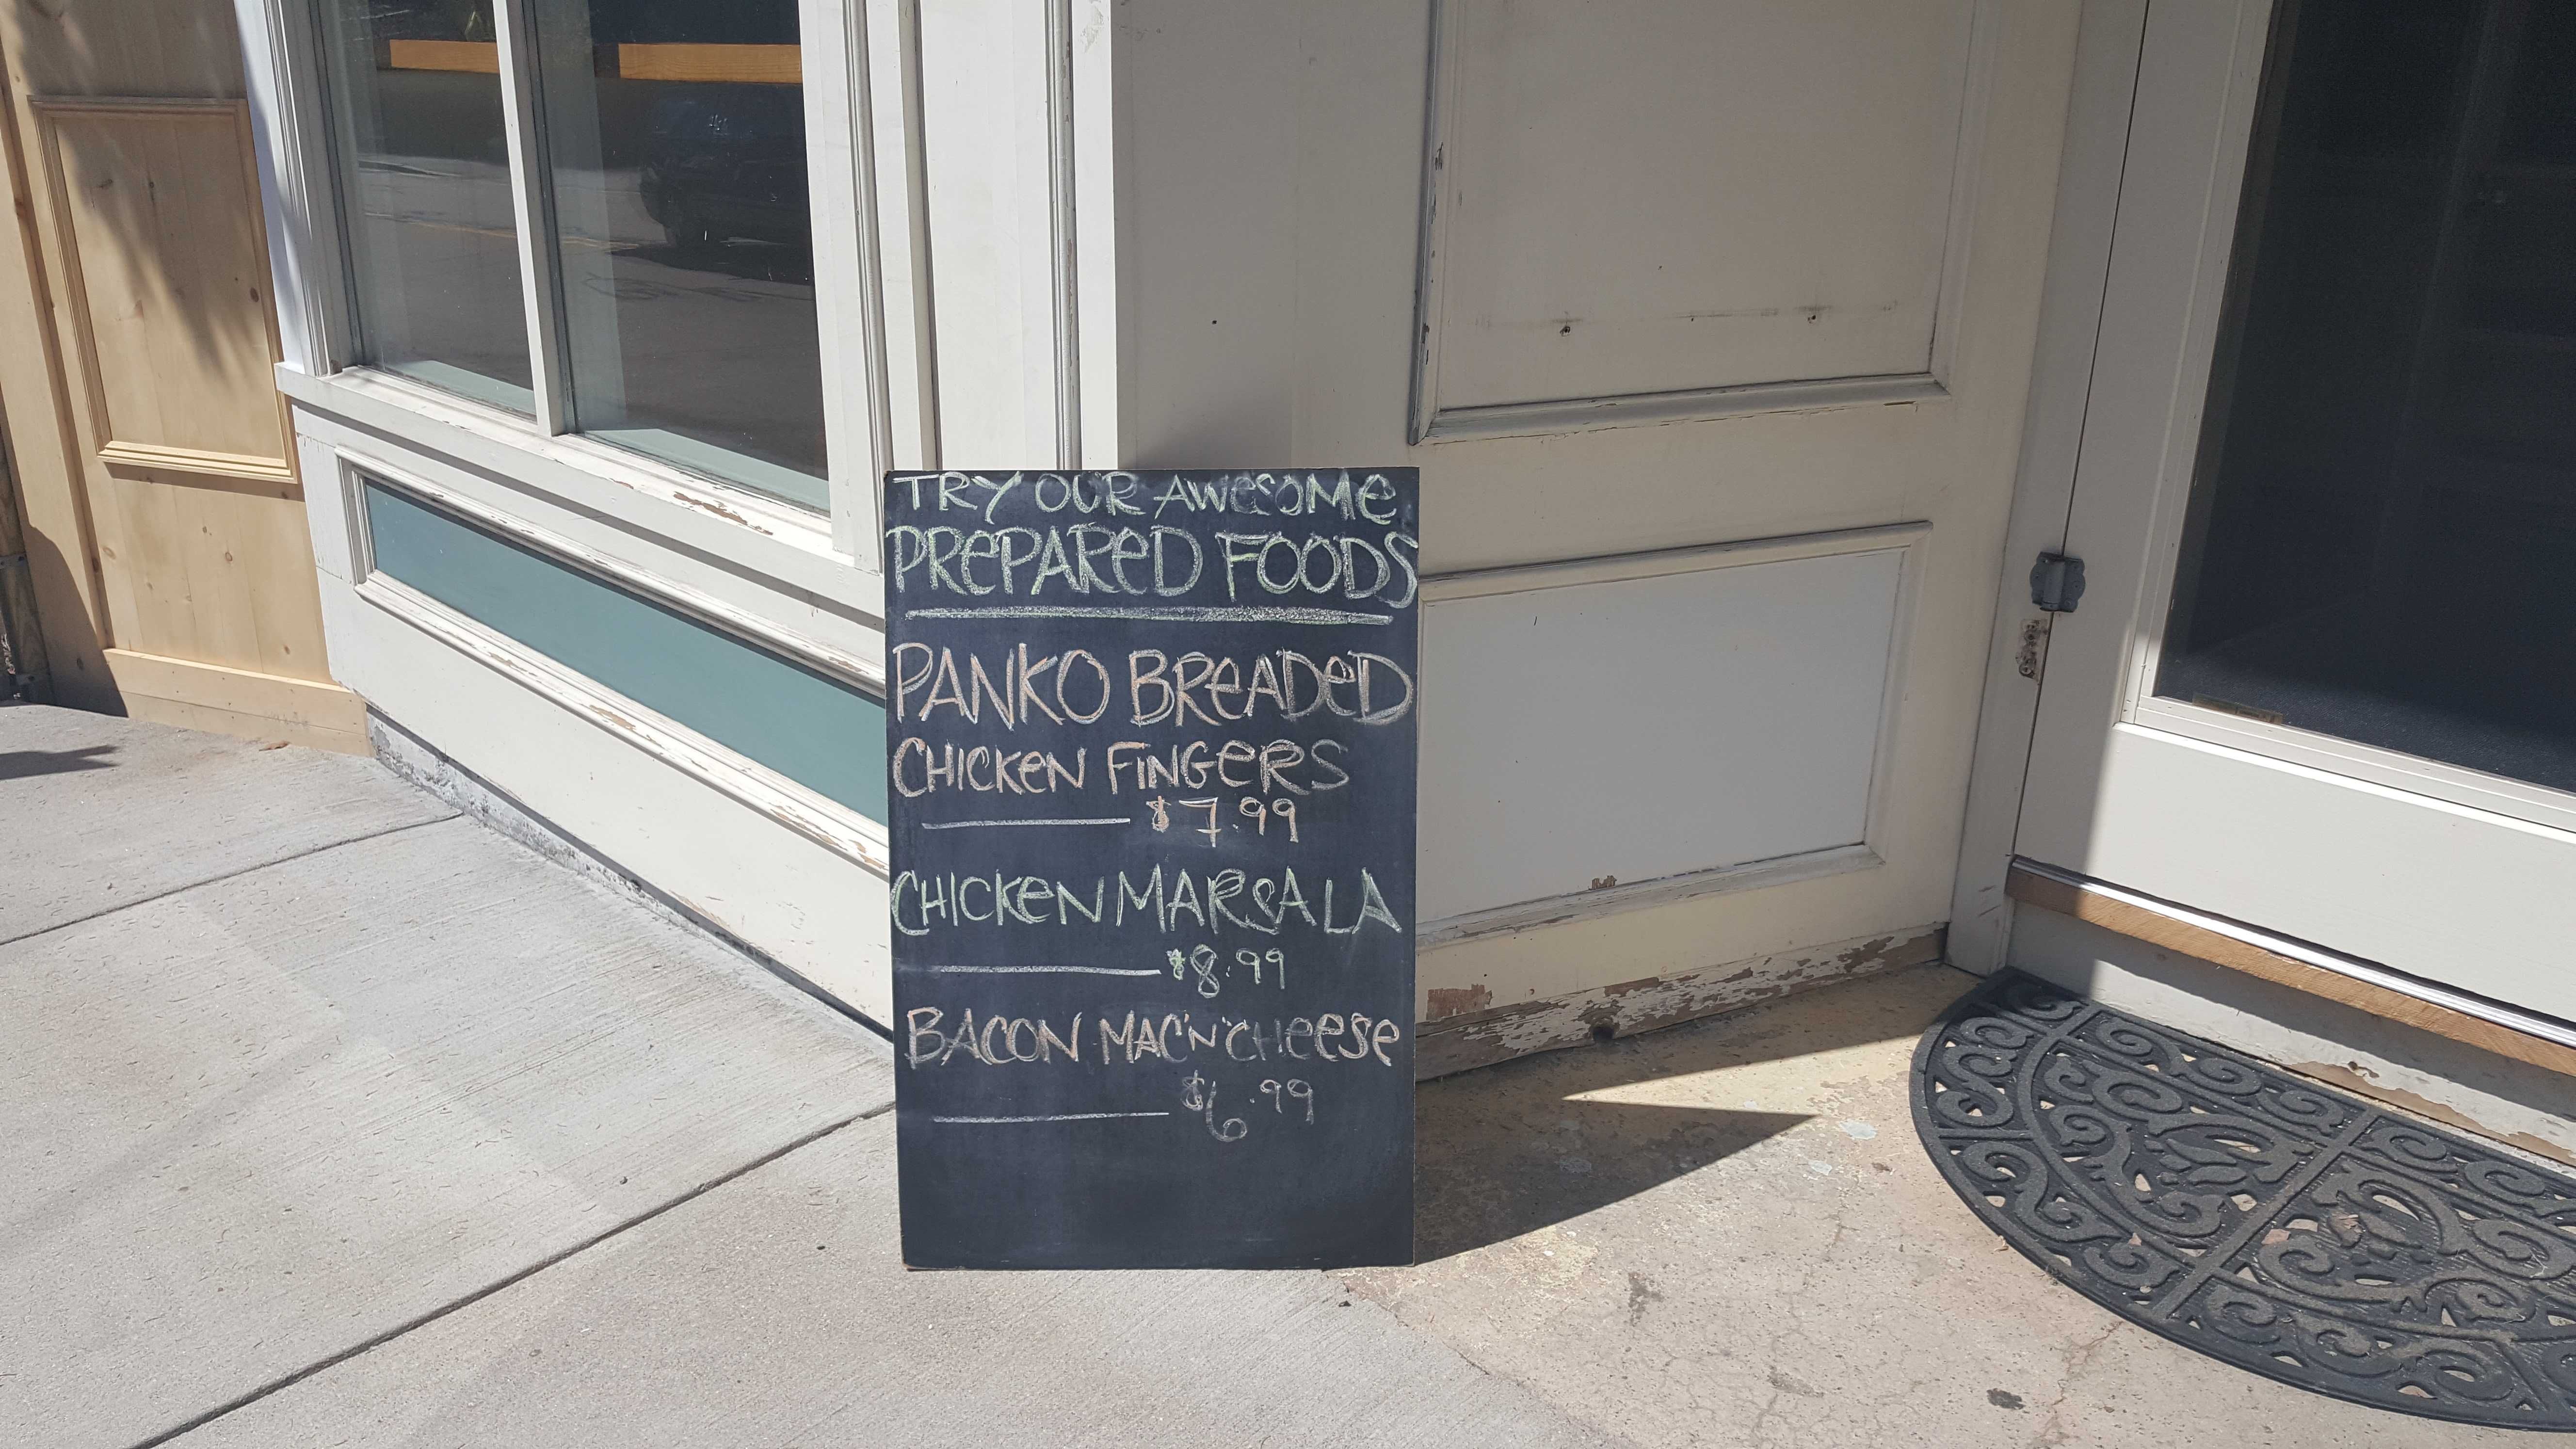 TRY OUR AWeSOMe
PRePAReD FOODS
PANKO BReADeD
CHICKeN FiNGeRS
$7.99
CHICKeN MARSALA
$8.99
BACON MAC'N'CHeeSe
$6.99